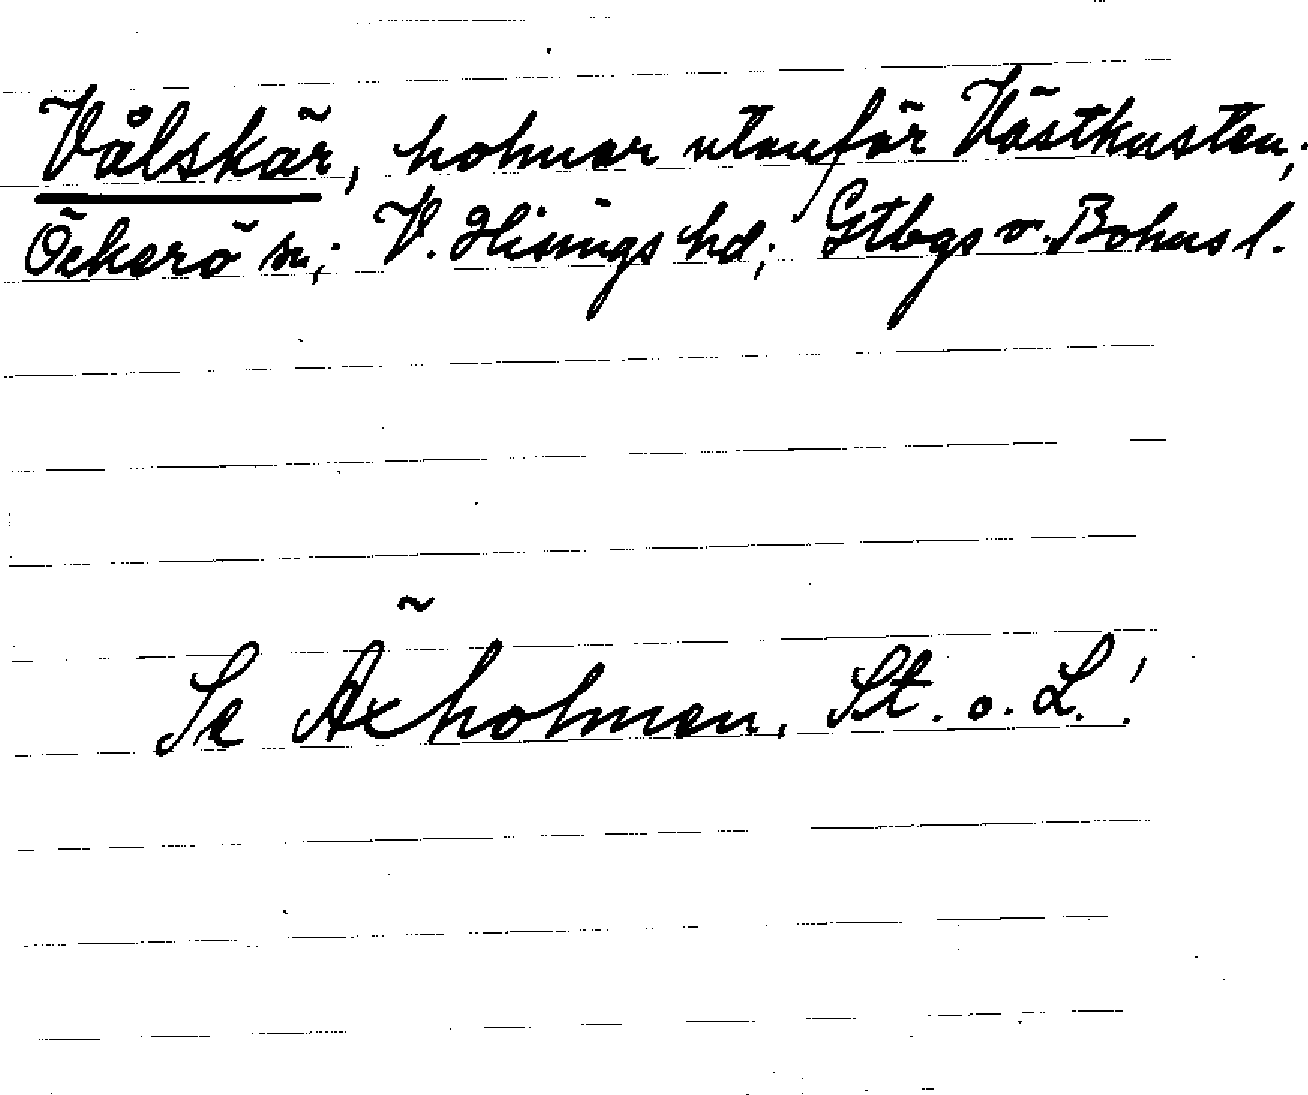 Vålskär, holmar utanför Västkusten;
Öckerö sn; V. Hisings hd; Gtbgs o. Bohus l.
Se Äxholmen, St. o. L.!